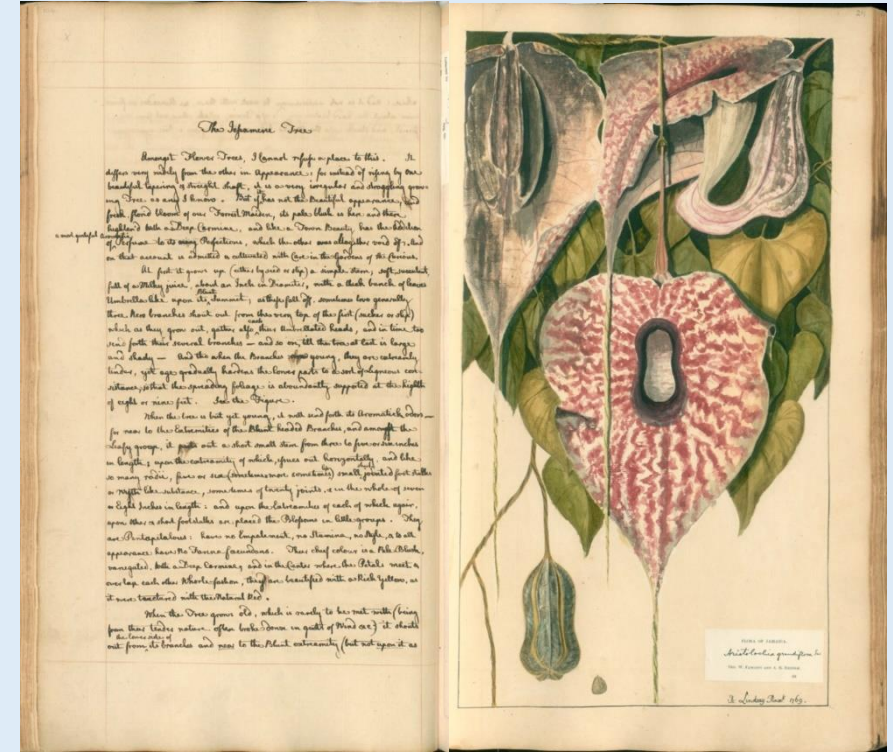 The Jessamine Tree
Amongst Flower Trees, I cannot refuse a place to this. It
differs very widely from the other in Appearance; for instead of rising by one
beautiful tapering & streight shaft, it is a very irregular and straggling grow-
ing Tree as any I know. But if it has not the Beautiful appearance, and
fresh florid bloom of our Forrest Maiden, its pale blush is here and there
highten'd with a Deep Carmine, and like a Town Beauty has the addition
a most grateful
of Perfume to its many Perfections, which the other was altogether void of; And
on that account is admitted & cultivated with Care in the Gardens of the Curious.
At first it grows up (either by seed or slip) a simple stem; soft, succulent,
full of a Milky juice, about an Inch in Diameter, with a thick bunch of leaves
Umbrella like upon its Summit; as these fall off, sometimes two generally
Blunt
three New branches shoot out from the very top of the first (sucker or slip)
which as they grow out, gettins also their Umbrellated heads, and in time too
each
sen forth their several branches — and so on, till the tree at last is large
and shady — And tho when the Branches young, they are extreamly
tender, yet age gradually hardens the lower parts to a sort of ligneous con-
sistance, so that the spreading foliage is abundantly supported at the highth
of eight or nine feet. See the Figure.
When the tree is but yet young, it will send forth its Aromatick odors—
for near to the Extremities of the Blunt headed Branches, and amongst the
leafy group, it puts out a short small stem from three to five or six inches
in length; upon the extremity of which, spring out horizontally, and like
so many radii, five or six (sometimes more sometimes) small jointed foot stalks
like substance, sometimes of twenty joints, & in the whole of seven
or Eight Inches in length: and upon the Extremities of each of which again,
upon short footstalks are placed the Blossoms in little groups. They
are Pentapetalous: have no Empalement, no Stamina, no Style, & to all
appearance have No Farina fæcundans. Their chief colour is a Pale Blush,
variegated with a Deep Carmine; and in the Center where the Petals meet &
overlap each other Whorle fashion, they are beautified with a Rich Yellow, as
it were tinctured with the Natural Red.
When the Tree grows old, which is rarely to be met with (being
from their tender nature often broke down in guist of Wind &c) it shoots
the lower sides of
out from its branches and near to the Blunt extreamity (but not upon it as
FLORA OF JAMAICA.
Aristolochia grandiflora Sw
DET. W. FAWCETT AND A. B. RENDLE.
Jn. Lindsay Pinxt 1769.